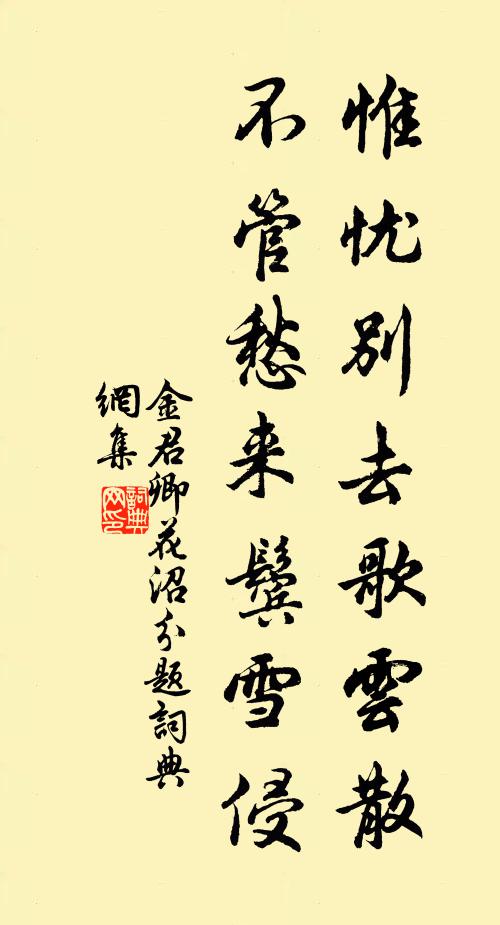 惟忧别去歌雲散
不管愁来鬓雪侵
金君卿花沼分题詞典
網集
詞典
网印